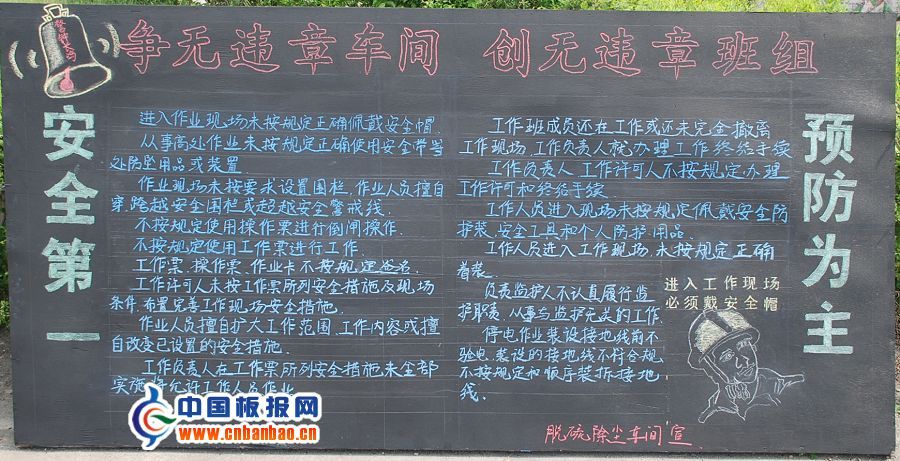 警钟长鸣
争无违章车间 创无违章班组
安全第一
进入作业现场未按规定正确佩戴安全帽.
从事高处作业未按规定正确使用安全带等
处防坠用品或装置
作业现场未按要求设置围栏,作业人员擅自
穿.跨越安全围栏或超越安全警戒线.
不按规定使用操作票进行倒闸操作.
不按规定使用工作票进行工作.
工作票、操作票、作业卡不按规定签名.
工作许可人未按工作票所列安全措施及现场
条件,布置完善工作现场安全措施.
作业人员擅自扩大工作范围、工作内容或擅
自改变已设置的安全措施.
工作负责人在工作票所列安全措施未全部
实施 允许工作人员作业
工作班成员还在工作或还未完全撤离
工作现场,工作负责人就办理工作终结手续
工作负责人、工作许可人不按规定办理
工作许可和终结手续
工作人员进入现场未按规定佩戴安全防
护装、安全工具和个人防护用品.
工作人员进入工作现场,未按规定正确
着装.
负责监护人不认真履行监
护职责,从事与监护无关的工作.
停电作业装设接地线前不
验电,装设的接地线不符合规,
不按规定和顺序装拆接地
线.
进入工作现场
必须戴安全帽
预防为主
脱硫除尘车间 宣
中国板报网
www.cnbanbao.cn